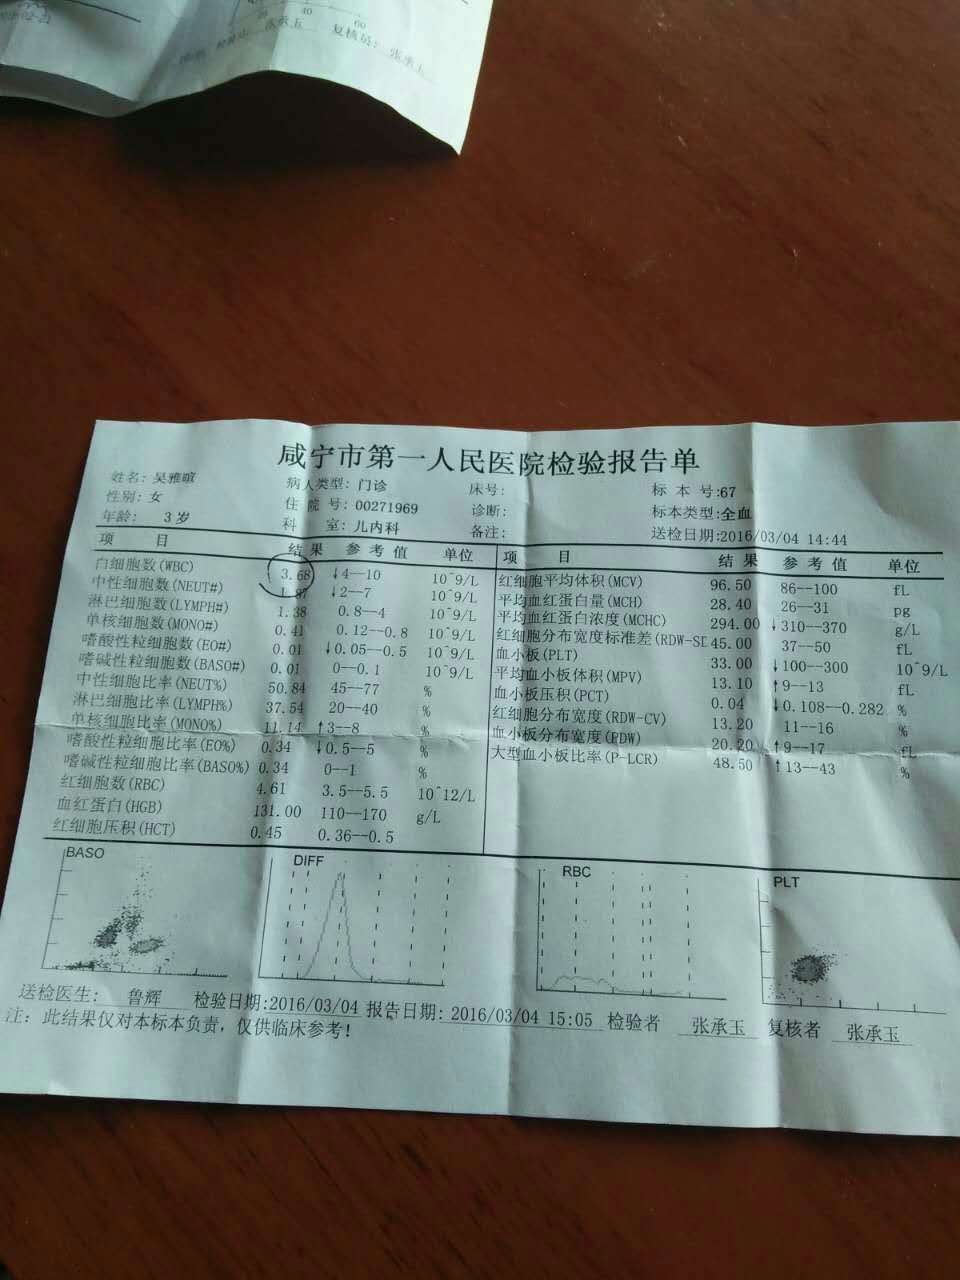 40
60
张承玉 复核员: 张承玉
咸宁市第一人民医院检验报告单
姓名: 吴雅暄 病人类型: 门诊 床号: 标 本 号:67
性别: 女 住 院 号: 00271969 诊断: 标本类型:全血
年龄: 3 岁 科 室: 儿内科 备注: 送检日期:2016/03/04 14:44
项 目 结 果 参 考 值 单位 项 目 结 果 参 考 值 单位
白细胞数(WBC) 3.68 ↓4--10 10^9/L
中性细胞数(NEUT#) 1.87 ↓2--7 10^9/L
淋巴细胞数(LYMPH#) 1.38 0.8--4 10^9/L
单核细胞数(MONO#) 0.41 0.12--0.8 10^9/L
嗜酸性粒细胞数(EO#) 0.01 ↓0.05--0.5 10^9/L
嗜碱性粒细胞数(BASO#) 0.01 0--0.1 10^9/L
中性细胞比率(NEUT%) 50.84 45--77 %
淋巴细胞比率(LYMPH%) 37.54 20--40 %
单核细胞比率(MONO%) 11.14 ↑3--8 %
嗜酸性粒细胞比率(EO%) 0.34 ↓0.5--5 %
嗜碱性粒细胞比率(BASO%) 0.34 0--1 %
红细胞数(RBC) 4.61 3.5--5.5 10^12/L
血红蛋白(HGB) 131.00 110--170 g/L
红细胞压积(HCT) 0.45 0.36--0.5
红细胞平均体积(MCV) 96.50 86--100 fL
平均血红蛋白量(MCH) 28.40 26--31 pg
平均血红蛋白浓度(MCHC) 294.00 ↓310--370 g/L
红细胞分布宽度标准差(RDW-SD 45.00 37--50 fL
血小板(PLT) 33.00 ↓100--300 10^9/L
平均血小板体积(MPV) 13.10 ↑9--13 fL
血小板压积(PCT) 0.04 ↓0.108--0.282 %
红细胞分布宽度(RDW-CV) 13.20 11--16 %
血小板分布宽度(RDW) 20.20 ↑9--17 fL
大型血小板比率(P-LCR) 48.50 ↑13--43 %
BASO DIFF RBC PLT
送检医生: 鲁辉 检验日期:2016/03/04 报告日期: 2016/03/04 15:05 检验者 张承玉 复核者 张承玉
注: 此结果仅对本标本负责, 仅供临床参考!